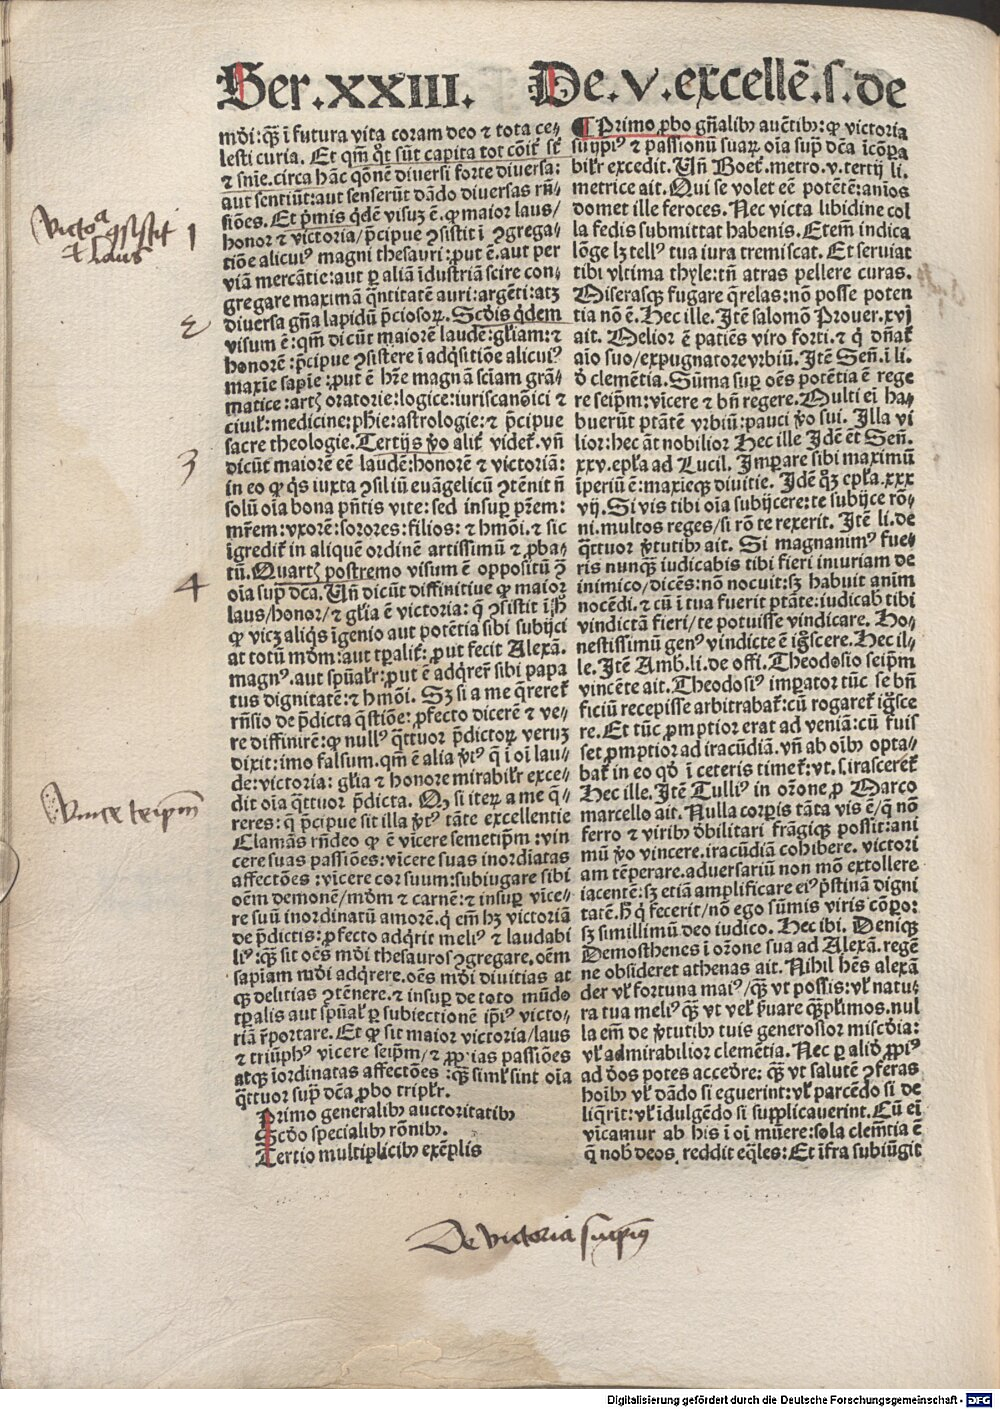 Ser.XXIII. De.v.excellẽ.s.de
mõi:qꝫ ĩ futura vita coram deo ⁊ tota ce⸗
lesti curia. Et qm̃ q̃t sũt capita tot cõit̃ sr̃
⁊ snĩe.circa hãc qõnẽ diuersi forte diuersa:
aut sentiũt:aut senserũt dãdo diuersas rñ⸗
siões. Et p̃mis q̃dẽ visuꝫ ẽ.ꝙ maior laus/
honor ⁊ victoria/p̃cipue ꝯsistit ĩ ꝯgrega⸗
tiõe alicuiꝰ magni thesauri:put ẽ.aut per
viã mercãtie:aut ꝑ aliã ĩdustriã scire con⸗
gregare maximã q̃ntitatẽ auri:argẽti:atꝫ
diuersa gña lapidũ p̃ciosoꝝ. Scd̃is q̃dem
visum ẽ:qm̃ dicũt maiorẽ laudẽ:gl̃iam:⁊
honorẽ:p̃cipue ꝯsistere ĩ adq̃sitiõe alicuiꝰ
maxĩe sapĩe:put ẽ hr̃e magnã sciam grã⸗
matice:artꝭ oratorie:logice:iuriscanõici ⁊
ciuil̃:medicine:phie:astrologie:⁊ p̃cipue
sacre theologie. Tertijs ṽo alit̃ videt̃.vñ
dicũt maiorẽ eẽ laudẽ:honorẽ ⁊ victoriã:
in eo ꝙ q̃s iuxta ꝯsiliũ euãgelicũ ꝯtẽnit ñ
solũ oĩa bona p̃ntis vite:sed insuꝑ pr̃em:
mr̃em:vxorẽ:sorores:filios:⁊ hmõi.⁊ sic
ĩgredit̃ in aliquẽ ordinẽ artissimũ ⁊ ꝓba⸗
tũ. Quartꝭ postremo visum ẽ oppositũ ꝫ
oĩa sup̃ dc̃a. Uñ dicũt diffinitiue ꝙ maior
laus/honor/⁊ gl̃ia ẽ victoria:q̃ ꝯsistit ĩ h̃
ꝙ vicꝫ aliq̃s ĩgenio aut potẽtia sibi subijci
at totũ mõm:aut tꝑalit̃:ꝓut fecit Alexã.
magnꝰ.aut spũalr̃:put ẽ adq̃rer̃ sibi papa
tus dignitatẽ:⁊ hmõi. Sꝫ si a me q̃reret̃
rñsio de p̃dicta q̃stiõe:ꝓfecto dicerẽ ⁊ ve⸗
re diffinirẽ:ꝙ nullꝰ q̃ttuor p̃dictoꝝ veruꝫ
dixit:imo falsum.qm̃ ẽ alia ṽtꝰ q̃ ĩ oĩ lau⸗
de:victoria: gl̃ia ⁊ honore mirabilr̃ exce⸗
dit oĩa q̃ttuor p̃dicta. Qꝫ si iteꝝ a me q̃⸗
reres:q̃ p̃cipue sit illa ṽtꝰ tãte excellentie
Clamãs rñdeo ꝙ ẽ vĩcere semetip̃m:vin
cere suas passiões:vĩcere suas inordĩatas
affectões:vĩcere cor suum:subiugare sibi
oẽm demonẽ/mõm ⁊ carnẽ:⁊ insuꝑ vĩce⸗
re suũ inordinatũ amorẽ.q̃ em̃ hꝫ victoriã
de p̃dictis:ꝓfecto adq̃rit meliꝰ ⁊ laudabi
liꝰ:qꝫ sit oẽs mõi thesauros ꝯgregare.oẽm
sapiam mõi adq̃rere.oẽs mõi diuitias at
qꝫ delitias ꝯtẽnere.⁊ insuꝑ de toto mũdo
tꝑalis aut spũalr̃ ꝑ subiectionẽ ip̃iꝰ victo⸗
riã r̃portare. Et ꝙ sit maior victoria/laus
⁊ triũphꝰ vĩcere seip̃m/⁊ ꝓpias passiões
atqꝫ ĩordinatas affectões:qꝫ siml̃ sint oĩa
q̃ttuor sup̃ dc̃a ꝓbo tripl̃r.
Primo generalibꝫ auctoritatibꝫ
Scd̃o specialibꝫ rõnibꝫ.
Tertio multiplicibꝫ exẽplis
¶ Primo ꝓbo gñalibꝫ auctĩbꝫ:ꝙ victoria
suiip̃iꝰ ⁊ passionũ suaꝝ oĩa sup̃ dc̃a ĩcõꝑa
bilr̃ excedit. Uñ Boet̃.metro.v.tertij li.
metrice ait. Qui se volet eẽ potẽtẽ:anĩos
domet ille feroces. Nec victa libidine col
la fedis submittat habenis. Etem̃ indica
lõge lꝫ tellꝰ tua iura tremiscat. Et seruiat
tibi vltima thyle:tñ atras pellere curas.
Miserasqꝫ fugare q̃relas:nõ posse poten
tia nõ ẽ. Hec ille. Itẽ salomõ Prouer.xvj
ait. Melior ẽ patiẽs viro forti.⁊ q̃ dñat̃
aĩo suo/expugnatore vrbiũ. Itẽ Señ.ĩ li.
d̃ clemẽtia. Sũma suꝑ oẽs potẽtia ẽ rege
re seip̃m:vĩcere ⁊ bñ regere. Multi eĩ ha⸗
buerũt ptãtẽ vrbiũ:pauci ṽo sui. Illa vi
lior:hec ãt nobilior Hec ille Idẽ ẽt Señ.
xxv.epl̃a ad Lucil. Imꝑare sibi maximũ
ĩperiũ ẽ:maxieqꝫ diuitie. Idẽ q̃ꝫ epl̃a.xxx
vij. Si vis tibi oĩa subijcere:te subijce rõ⸗
ni.multos reges/si rõ te rexerit. Itẽ li.de
q̃ttuor ṽtutibꝫ ait. Si magnanimꝰ fue⸗
ris nunqꝫ iudicabis tibi fieri iniuriam de
inimico/dicẽs:nõ nocuit:sꝫ habuit anĩm
nocẽdi.⁊ cũ ĩ tua fuerit ptãte:iudicab̃ tibi
vindictã fieri/te potuisse vindicare. Ho⸗
nestissimũ genꝰ vindicte ẽ ĩgscere. Hec il⸗
le. Itẽ Amb.li.de offi. Theodosio seip̃m
vincẽte ait. Theodosiꝰ imꝑator tũc se bñ
ficiũ recepisse arbitrabat̃:cũ rogaret̃ ĩgsce
re. Et tũc ꝓmptior erat ad veniã:cũ fuis
set ꝓmptior ad iracũdiã.vñ ab oĩbꝫ opta⸗
bat̃ in eo qd̃ ĩ ceteris timet̃:vt.s.irasceret̃
Hec ille. Itẽ Tulliꝰ in orõne ꝓ Marco
marcello ait. Nulla corp̃is tãta vis ẽ/q̃ nõ
ferro ⁊ viribꝫ d̃bilitari frãgiqꝫ possit:ani
mũ ṽo vincere.iracũdiã cohibere. victori
am tẽperare.aduersariũ non mõ extollere
iacentẽ:sꝫ etiã amplificare eiꝰ p̃stinã digni
tatẽ.h̃ q̃ fecerit/nõ ego sũmis viris cõꝑo:
sꝫ simillimũ deo iudico. Hec ibi. Deniqꝫ
Demosthenes ĩ orõne sua ad Alexã.regẽ
ne obsideret athenas ait. Nihil hẽs alexã
der vl̃ fortuna maiꝰ/qꝫ vt possis:vl̃ natu⸗
ra tua meliꝰ qꝫ vt vel̃ p̃uare qꝫpl̃imos.nul
la em̃ de ṽtutibꝫ tuis generosior misc̃dia:
vl̃ admirabilior clemẽtia. Nec ꝑ aliõ ꝓpiꝰ
ad d̃os potes accedr̃e: qꝫ vt salutẽ ꝯferas
hoĩbꝫ vl̃ dãdo si eguerint:vl̃ parcẽdo si de
liq̃rĩt:vl̃ ĩdulgẽdo si supplicauerint. Cũ eĩ
vĩcamur ab his ĩ oĩ mũere:sola clemẽtia ẽ
q̃ nobꝫ deos reddit eq̃les: Et ĩfra subiũgit
victoa ꝯsistit
⁊ laus
1
2
3
4
Vince teip̃m
De victoria suiip̃ius
Digitalisierung gefördert durch die Deutsche Forschungsgemeinschaft - DFG